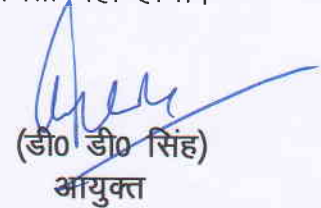 (डी0 डी0 सिंह)
आयुक्त